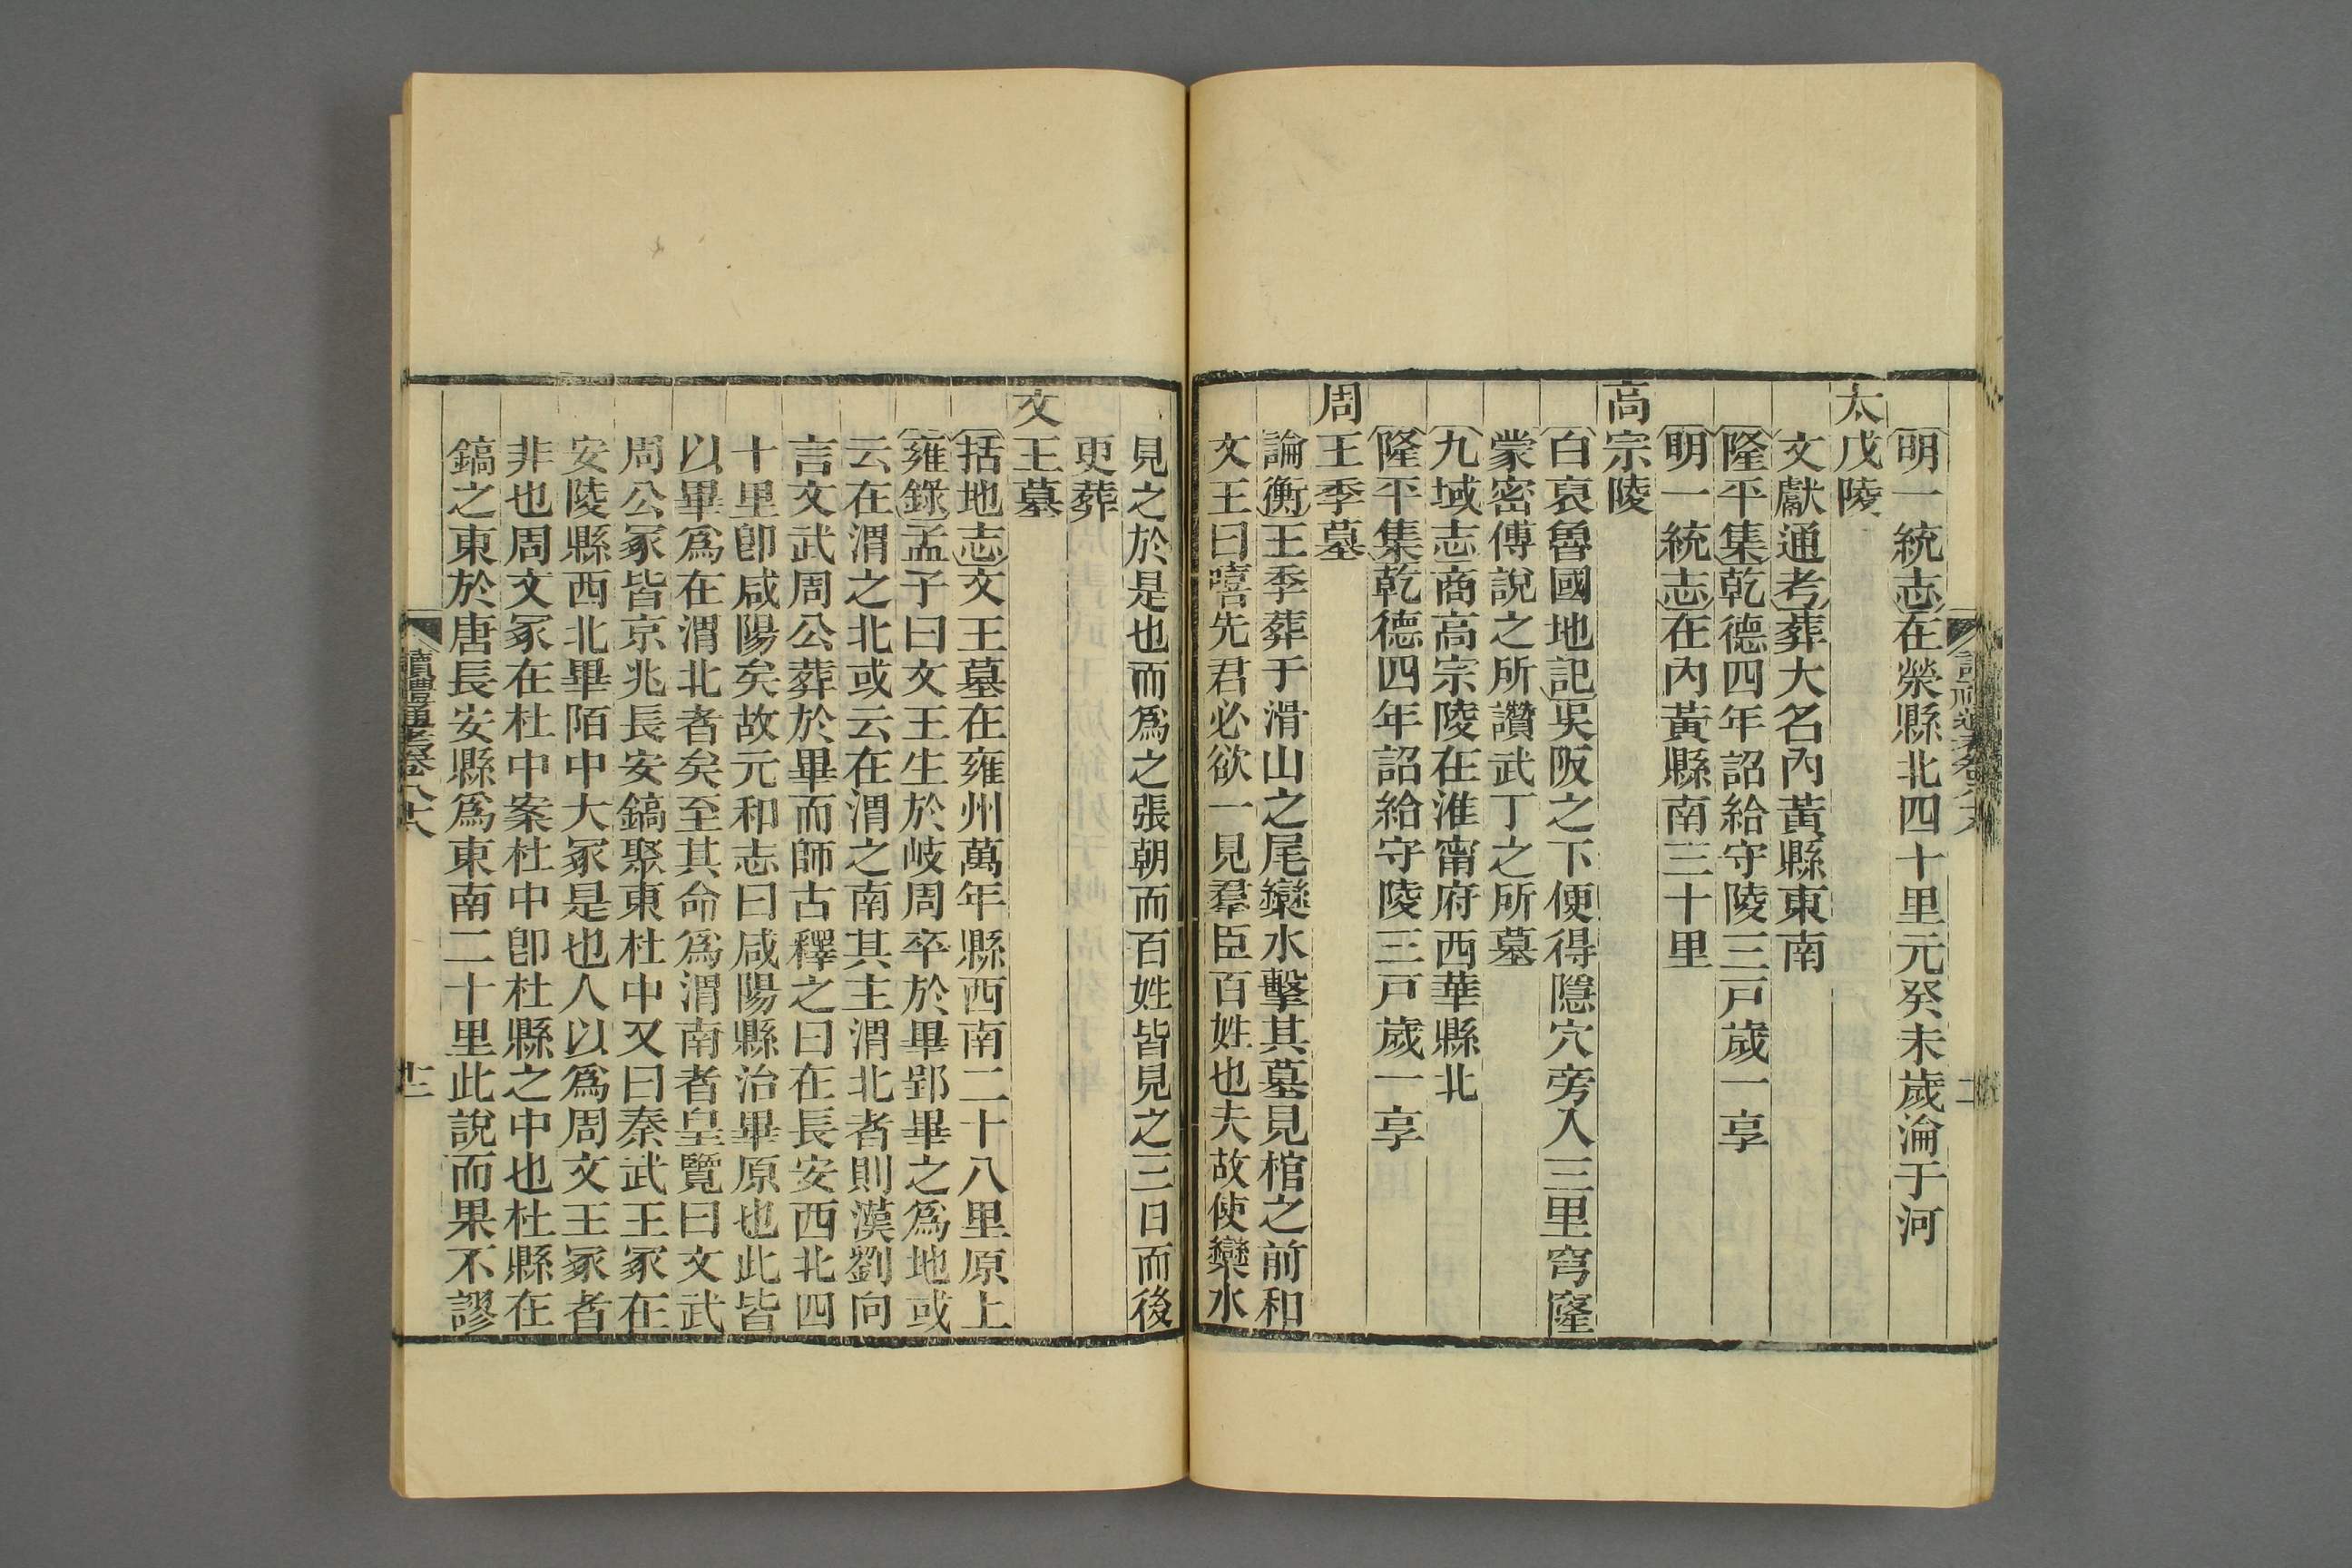 明一統志在滎縣北四十里元癸未歲淪于河
太戊陵
文獻通考葬大名內黃縣東南
隆平集乾德四年詔給守陵三戶歲一享
明一統志在內黃縣南三十里
高宗陵
白裒魯國地記吳阪之下便得隱穴旁入三里穹窿
蒙密傅說之所讚武丁之所墓
九域志商高宗陵在淮甯府西華縣北
隆平集乾德四年詔給守陵三戶歲一享
周王季墓
論衡王季葬于滑山之尾欒水擊其墓見棺之前和
文王曰嘻先君必欲一見羣臣百姓也夫故使欒水
見之於是也而爲之張朝而百姓皆見之三日而後
更葬
文王墓
括地志文王墓在雍州萬年縣西南二十八里原上
雍錄孟子曰文王生於岐周卒於畢郢畢之爲地或
云在渭之北或云在渭之南其主渭北者則漢劉向
言文武周公葬於畢而師古釋之曰在長安西北四
十里卽咸陽矣故元和志曰咸陽縣治畢原也此皆
以畢爲在渭北者矣至其命爲渭南者皇覽曰文武
周公冢皆京兆長安鎬聚東杜中又曰秦武王冢在
安陵縣西北畢陌中大冢是也人以爲周文王冢者
非也周文冢在杜中案杜中卽杜縣之中也杜縣在
鎬之東於唐長安縣爲東南二十里此說而果不謬
讀禮通考卷八十八